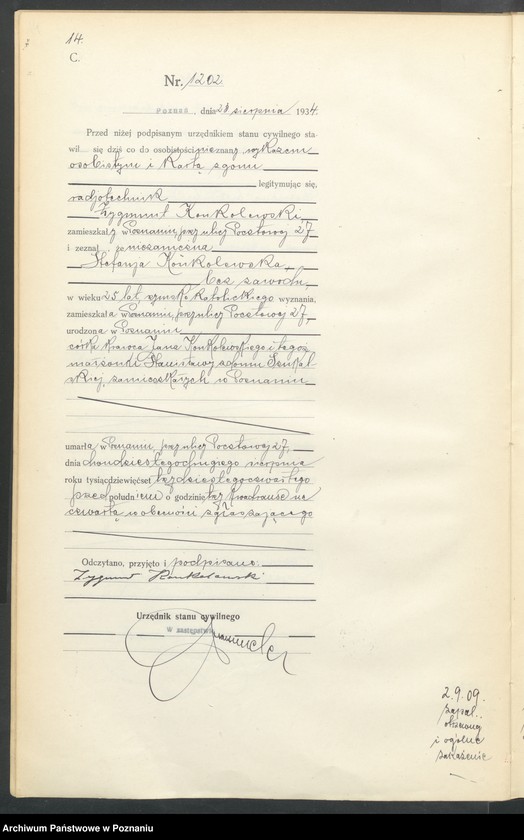 14.
C.
Nr. 1202.
Poznań, dnia 28 sierpnia 1934.
Przed niżej podpisanym urzędnikiem stanu cywilnego sta-
wił się dziś co do osobistości nieznany wykazem
osobistym i kartą zgonu
legitymując się,
radjotechnik
Zygmunt Konkolewski
zamieszkały w Poznaniu, przy ulicy Pocztowej 27
i zeznał, że niezamężna
Stefanja Konkolewska,
bez zawodu,
w wieku 25 lat, rzymsko katolickiego wyznania,
zamieszkała w Poznaniu, przy ulicy Pocztowej 27,
urodzona w Poznaniu
córka krawca Jana Konkolewskiego i tegoż
małżonki Stanisławy z domu
zamieszkałych w Poznaniu
umarła w Poznaniu, przy ulicy Pocztowej 27,
dnia dwudziestego drugiego sierpnia
roku tysiąc dziewięćset trzydziestego czwartego
przed południem o godzinie trzy kwadranse na
czwartą w obecności zgłaszającego
Odczytano, przyjęto i podpisano
Zygmunt Konkolewski
Urzędnik stanu cywilnego
W zastępstwie
2.9.09.
zapal.
i ogólne
zakażenie
Archiwum Państwowe w Poznaniu